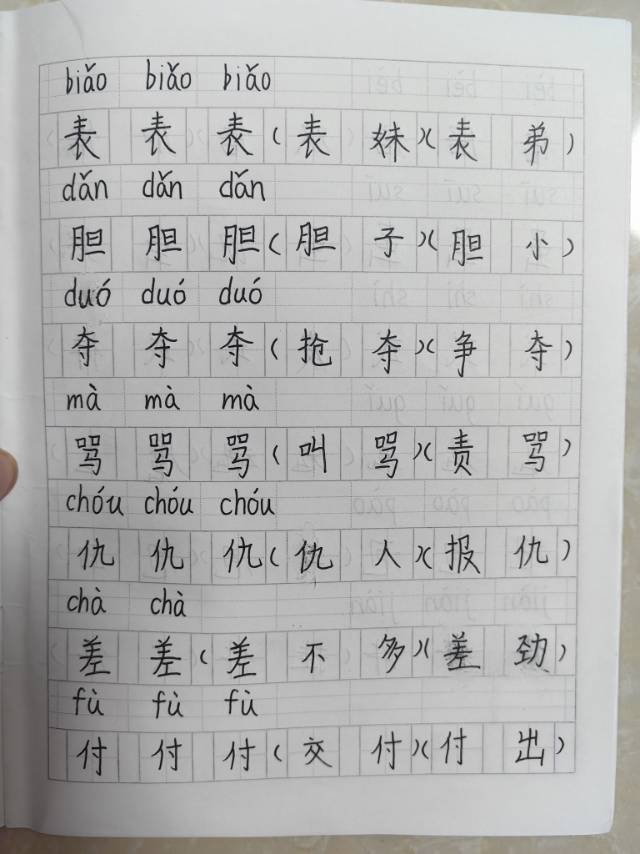 biǎo biǎo biǎo
表 表 表 ( 表 妹 ) ( 表 弟 )
dǎn dǎn dǎn
胆 胆 胆 ( 胆 子 ) ( 胆 小 )
duó duó duó
夺 夺 夺 ( 抢 夺 ) ( 争 夺 )
mà mà mà
骂 骂 骂 ( 叫 骂 ) ( 责 骂 )
chóu chóu chóu
仇 仇 仇 ( 仇 人 ) ( 报 仇 )
chà chà
差 差 ( 差 不 多 ) ( 差 劲 )
fù fù fù
付 付 付 ( 交 付 ) ( 付 出 )